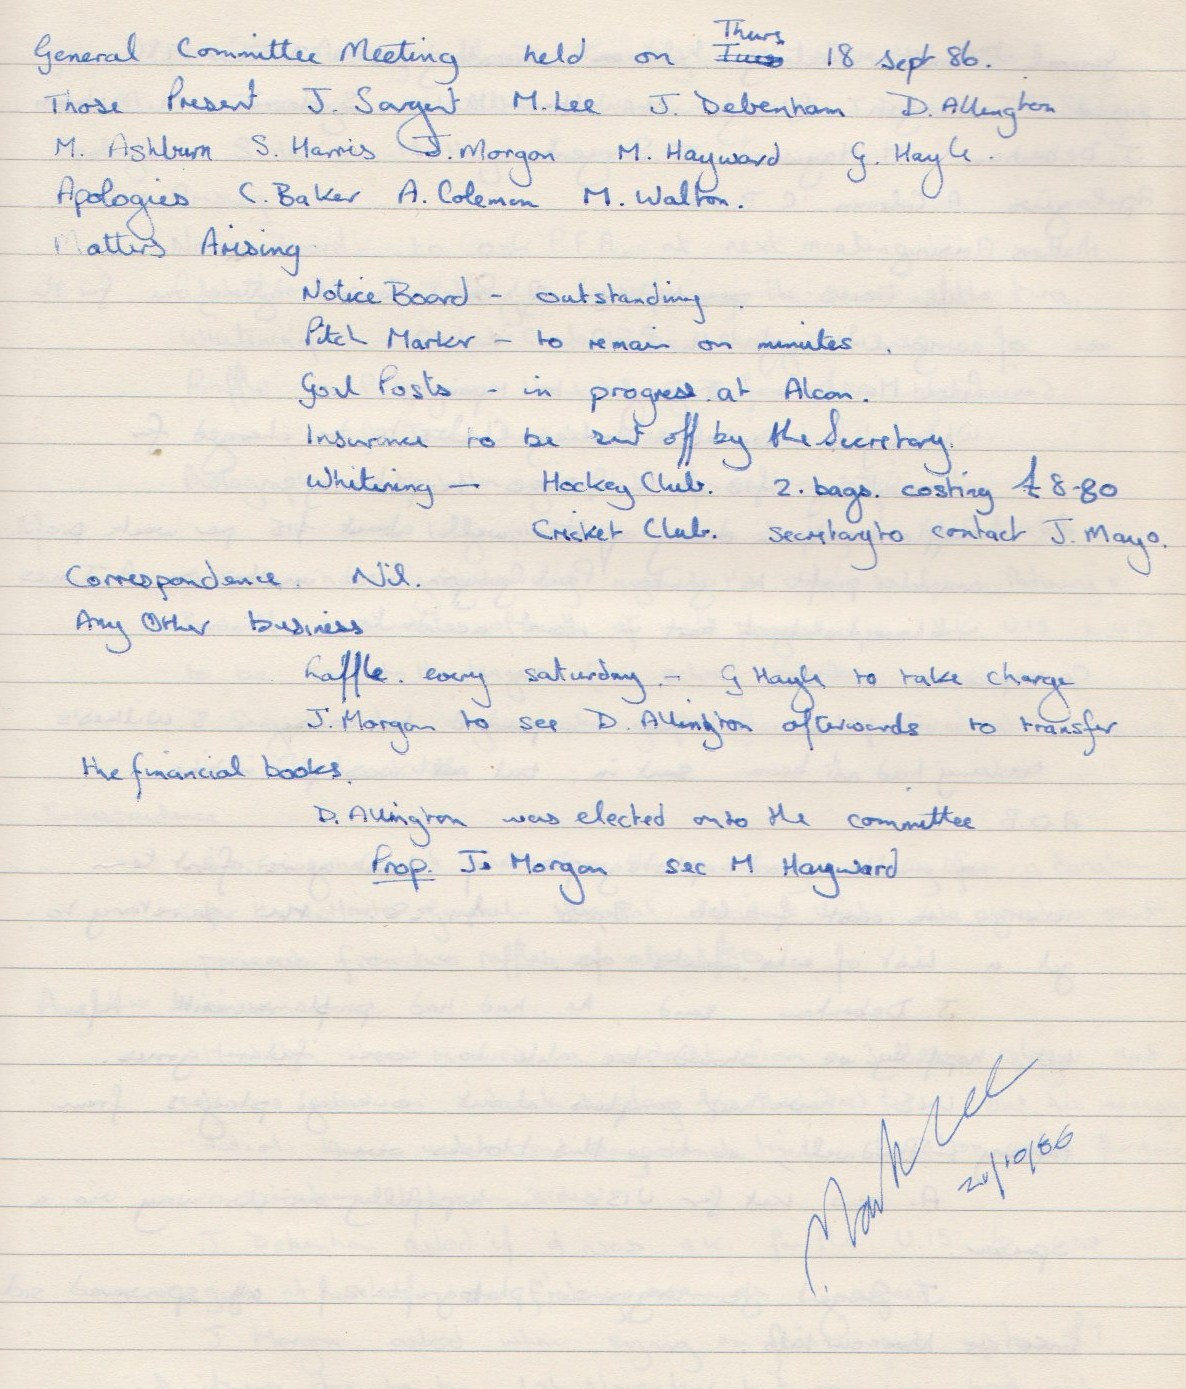 General Committee Meeting held on Thurs 18 Sept 86.
Those Present J. Sargent M. Lee J. Debenham D. Allington
M. Ashburn S. Harris J. Morgan M. Hayward G. Hayle.
Apologies C. Baker A. Coleman M. Walton.
Matters Arising
Notice Board - outstanding.
Pitch Marker - to remain on minutes.
Goal Posts - in progress at Alcon.
Insurance to be sent off by the Secretary.
Whitening - Hockey Club. 2. bags. costing £8-80
Cricket Club. secretary to contact J. Mayo.
Correspondence. Nil.
Any Other business
Raffle. every saturday - G Hayle to take charge
J. Morgan to see D. Allington afterwards to transfer
the financial books.
D. Allington was elected onto the committee
Prop. J. Morgan sec M Hayward
Mark Lee
/10/86